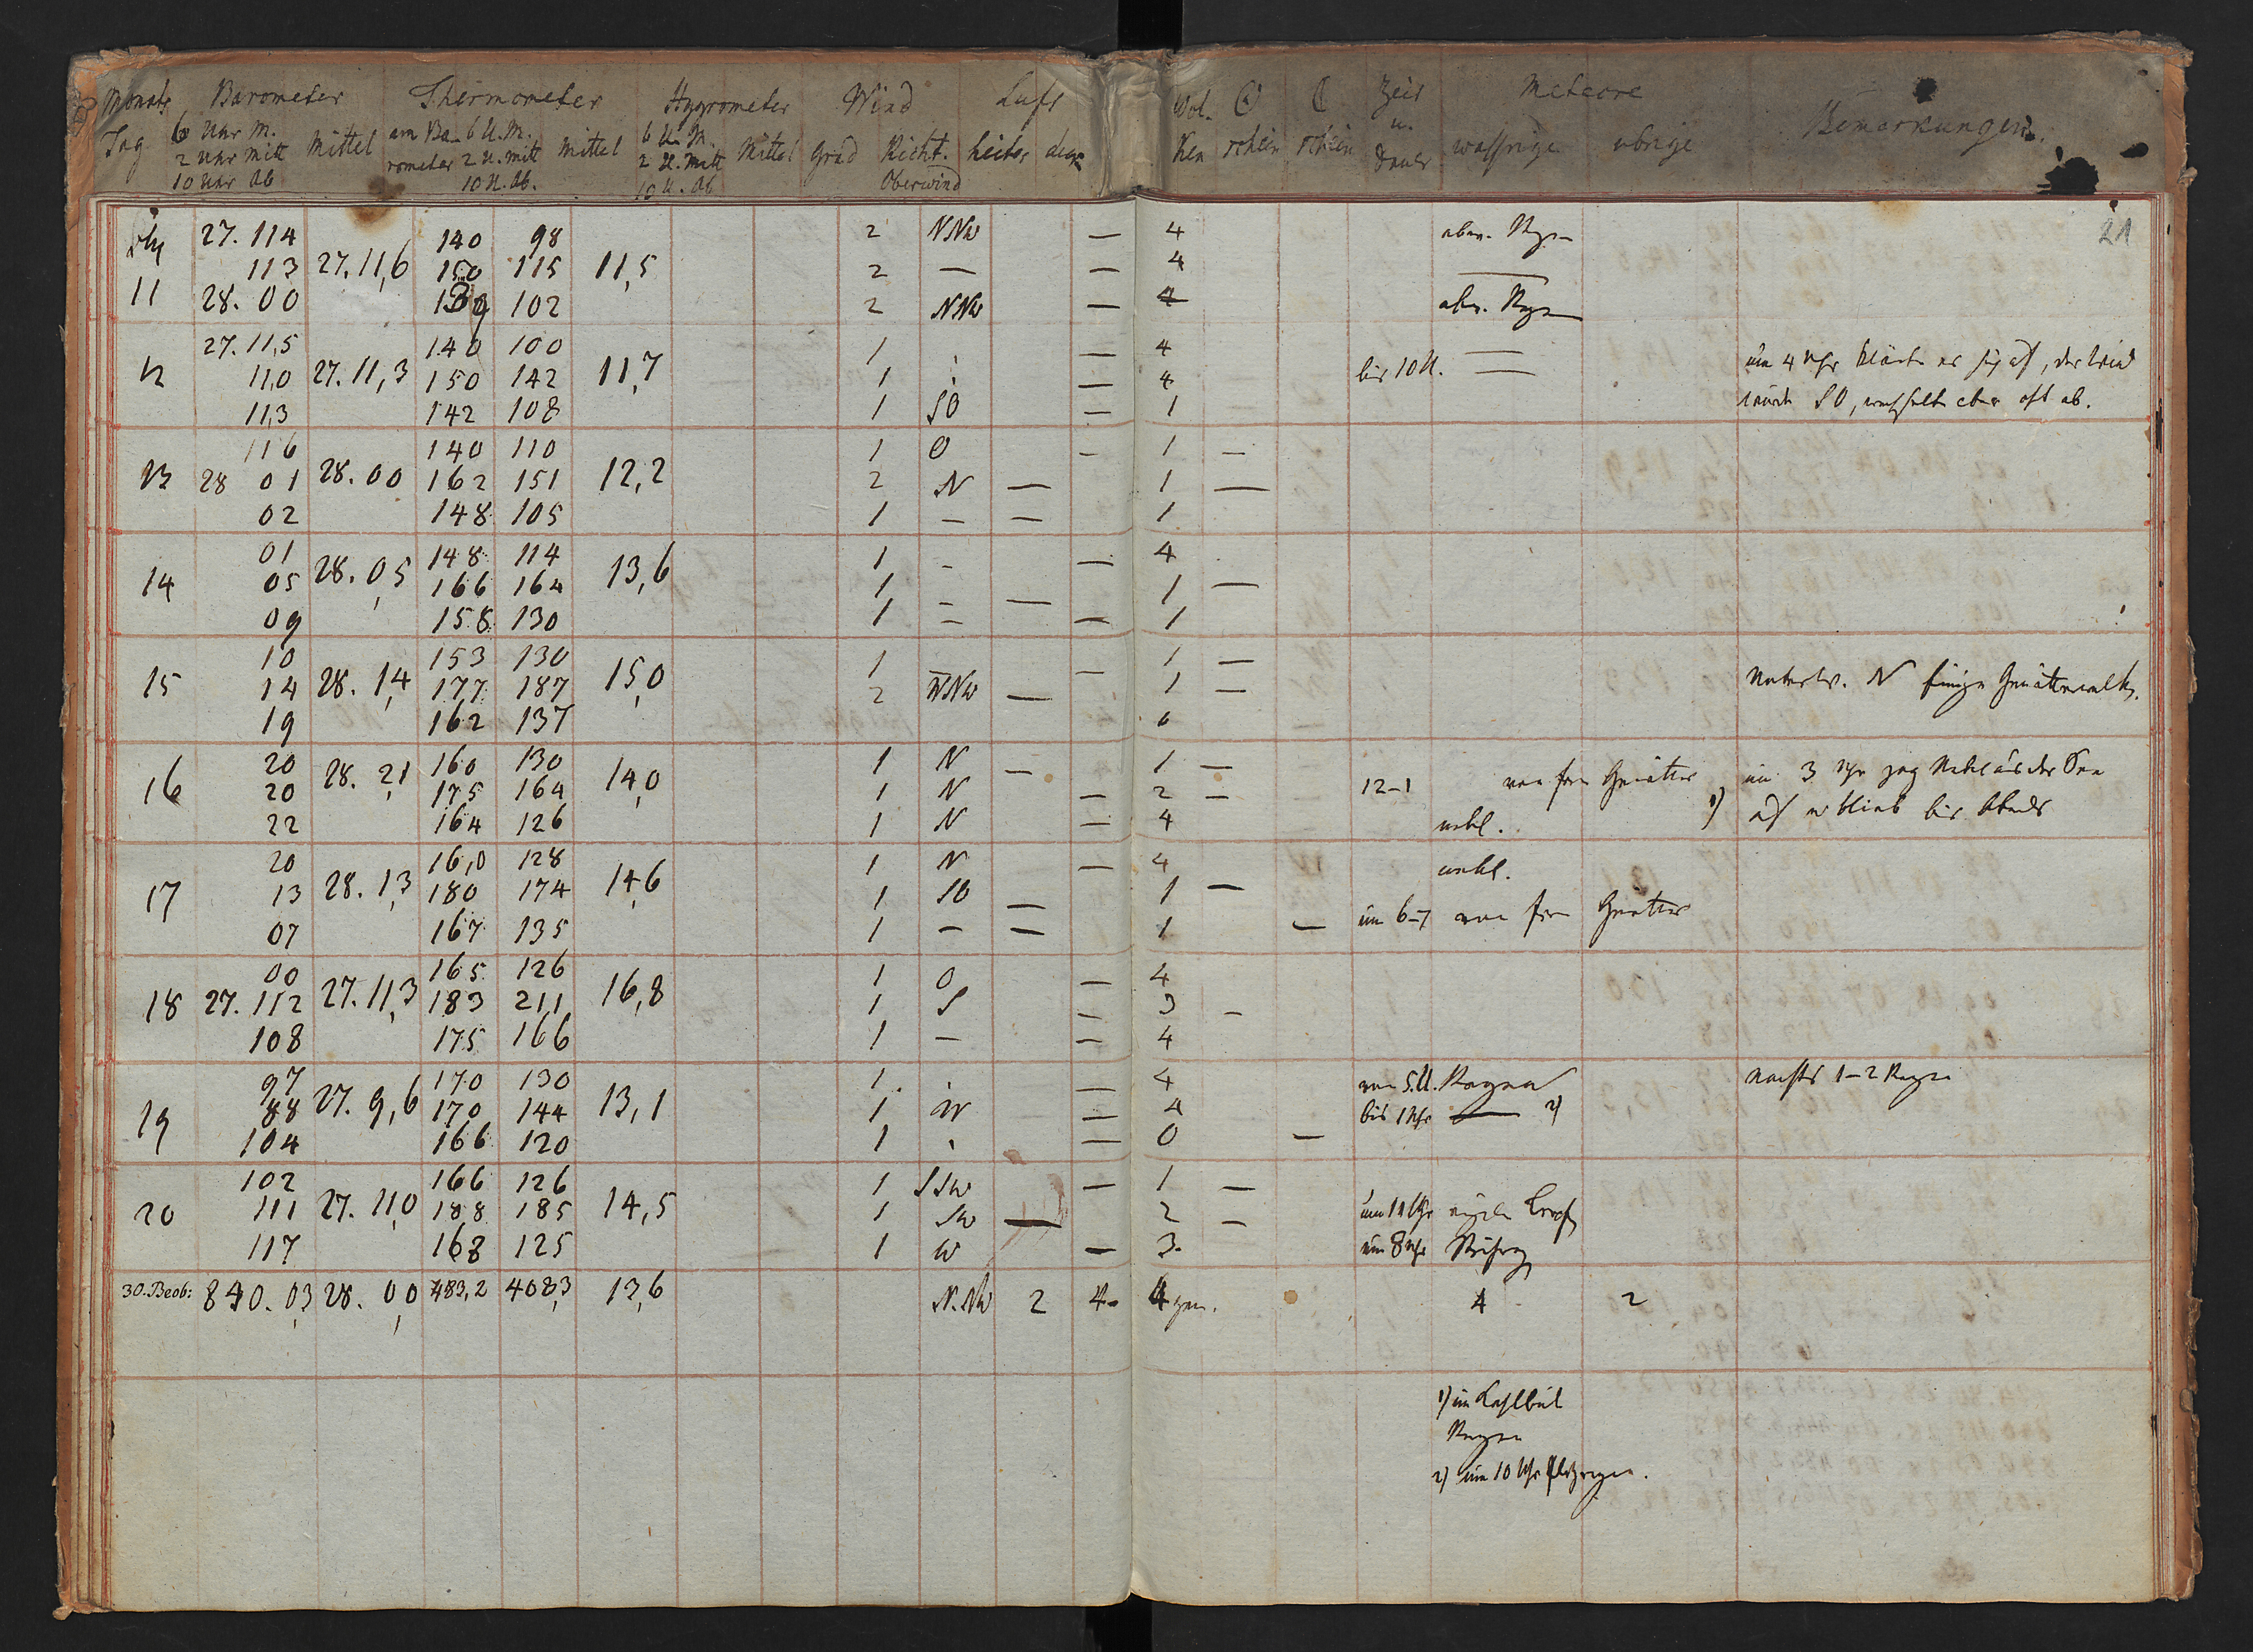 Monats Barometer Thermometer Hygrometer Wind Luft Wol- ☉ ☾ Zeit Meteore Bemerkungen.
Tag 6 Uhr M. Mittel am Ba- 6 U. M. Mittel 6 U. M. Mittel Grad Richt. heiter ken schein schein u. wassrige ubrige
2 Uhr Mitt rometer 2 U. Mitt 2 U. Mitt Oberwind Dauer
10 Uhr Ab 10 U. Ab. 10 U. Ab
21
27. 114 140 98 2 NNW — 4 Regen
11 113 27. 11,6 150 115 11,5 2 — — 4 —
28. 00 139 102 2 NNW — 4 Regen
27. 11,5 140 100 1 — 4 —
12 11,0 27. 11,3 150 142 11,7 1 — 4 bis 10 U. — um 4 Uhr klärte es sich auf, der Wind
11,3 142 108 1 SO — 1 wurde SO, wechselte aber oft ab.
116 140 110 1 O - 1 —
13 28 01 28. 00 162 151 12,2 2 N — 1 —
02 148 105 1 — — 1
01 148 114 1 - — 4
14 05 28. 0,5 166 164 13,6 1 - — 1 —
09 158 130 1 - — 1
10 153 130 1 — 1 —
15 14 28. 1,4 177 187 15,0 2 WNW — 1 — Unterw. N einige Gewitterwolk.
19 162 137 0
20 160 130 1 N — 1 —
16 20 28. 2,1 175 164 14,0 1 N — 2 - 12-1 von fern Gewitter 1) um 3 Uhr zog Nebel aus der See
22 164 126 1 N — 4 nebl. auf u blieb bis Abends
20 16,0 128 1 N — 4 nebl.
17 13 28. 1,3 180 174 14,6 1 SO — 1 —
07 167 135 1 — — 1 — um 6-7 von fern Gewitter
00 165 126 1 O — 4
18 27. 112 27. 11,3 183 21,1 16,8 1 S — 3 -
108 175 166 1 — — 4
97 170 130 1 — 4 von 5. U. Regen nachts 1-2 Regen
19 88 27. 9,6 170 144 13,1 1 W — 4 bis 1 Uhr — 2)
104 166 120 1 — 0 —
102 166 126 1 SSW — 1 —
20 111 27. 11,0 188 185 14,5 1 SW — 2 — um 11 Uhr einzelne Tropf
117 168 125 1 W — 3. um 8 Uhr
30. Beob: 840. 03 28. 0,0 483,2 408,3 13,6 N. NW 2 4- 4 4 2
1) um
Regen
2) um 10 Uhr Platzregen.